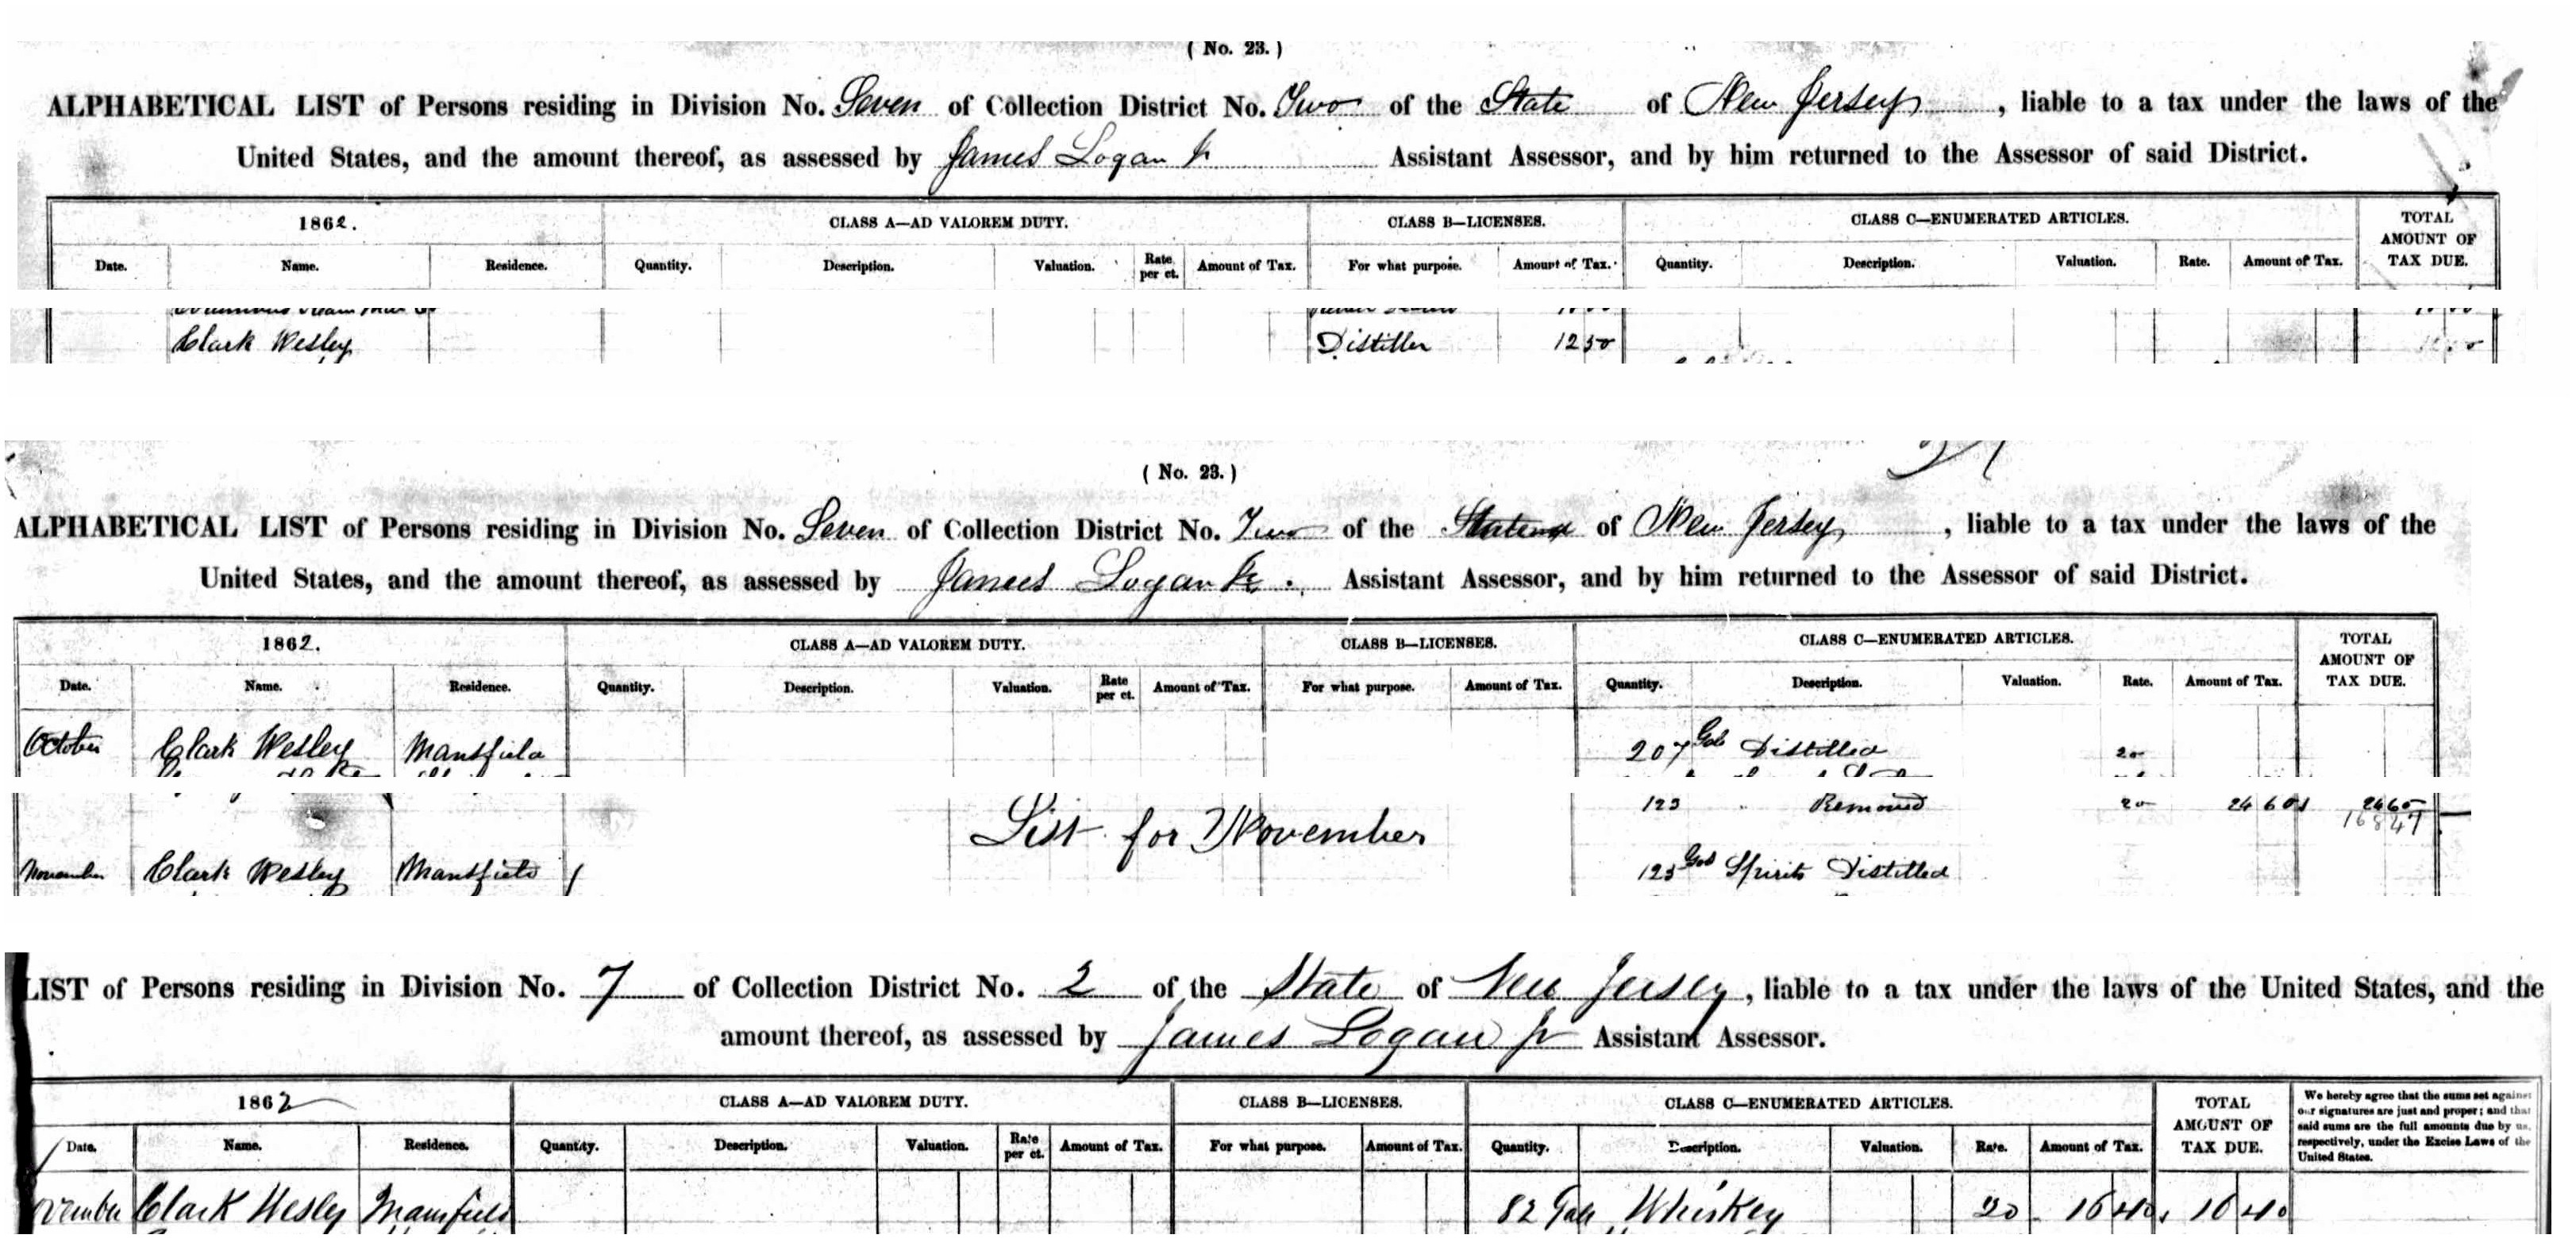 ( No. 23. )
ALPHABETICAL LIST of Persons residing in Division No. Seven of Collection District No. Two of the State of New Jersey, liable to a tax under the laws of the
United States, and the amount thereof, as assessed by James Logan Jr Assistant Assessor, and by him returned to the Assessor of said District.
1862. CLASS A—AD VALOREM DUTY. CLASS B—LICENSES. CLASS C—ENUMERATED ARTICLES. TOTAL AMOUNT OF TAX DUE.
Date. Name. Residence. Quantity. Description. Valuation. Rate per ct. Amount of Tax. For what purpose. Amount of Tax. Quantity. Description. Valuation. Rate. Amount of Tax.
Clark Wesley Distiller 12 50
( No. 23. )
ALPHABETICAL LIST of Persons residing in Division No. Seven of Collection District No. Two of the State of New Jersey, liable to a tax under the laws of the
United States, and the amount thereof, as assessed by James Logan Jr. Assistant Assessor, and by him returned to the Assessor of said District.
1862. CLASS A—AD VALOREM DUTY. CLASS B—LICENSES. CLASS C—ENUMERATED ARTICLES. TOTAL AMOUNT OF TAX DUE.
Date. Name. Residence. Quantity. Description. Valuation. Rate per ct. Amount of Tax. For what purpose. Amount of Tax. Quantity. Description. Valuation. Rate. Amount of Tax.
October Clark Wesley Mansfield 207 Gals Distilled 20
123 " Removed 20 24 60 24 60
168 47
List for November
November Clark Wesley Mansfield 123 Gals Spirits Distilled
LIST of Persons residing in Division No. 7 of Collection District No. 2 of the State of New Jersey, liable to a tax under the laws of the United States, and the
amount thereof, as assessed by James Logan Jr Assistant Assessor.
1862 CLASS A—AD VALOREM DUTY. CLASS B—LICENSES. CLASS C—ENUMERATED ARTICLES. TOTAL AMOUNT OF TAX DUE. We hereby agree that the sums set against our signatures are just and proper; and that said sums are the full amounts due by us, respectively, under the Excise Laws of the United States.
Date. Name. Residence. Quantity. Description. Valuation. Rate per ct. Amount of Tax. For what purpose. Amount of Tax. Quantity. Description. Valuation. Rate. Amount of Tax.
ovember Clark Wesley Mansfield 82 Gals Whiskey 20 16 40 16 40